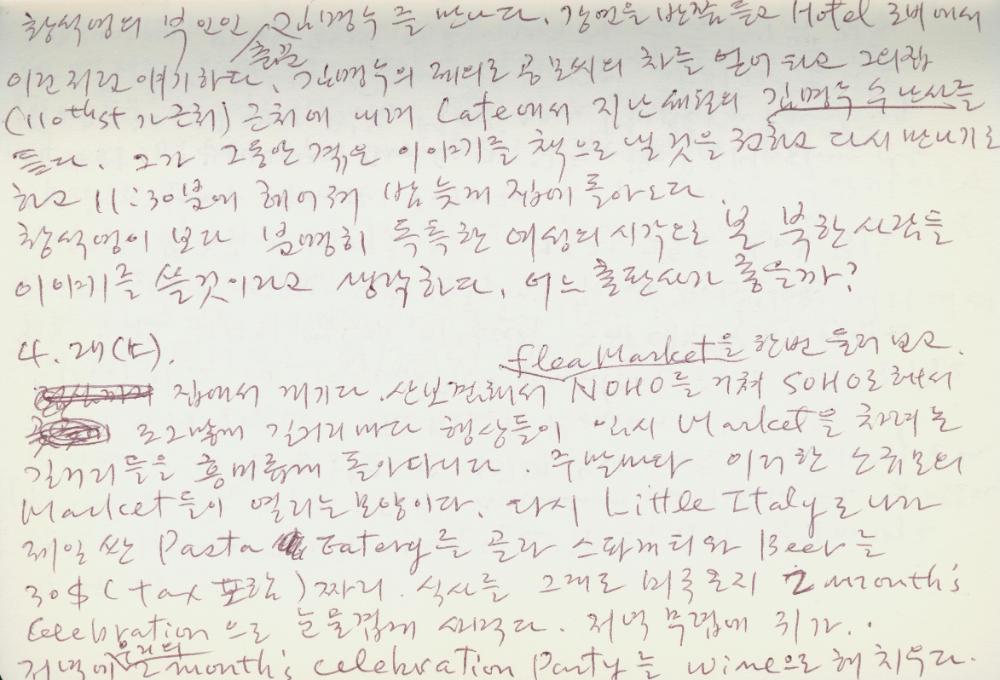 황석영의 부인인 김명수를 만나다. 강연을 반쯤 듣고 Hotel 로비에서
이런저런 얘기하다, 출판 김명수의 제의로 공모씨의 차를 얻어 타고 그의집
(110th st 가 근처) 근처에 내려 Cafe에서 지난 세월의 김명수 수난사를
듣다. 그가 그동안 겪은 이야기를 책으로 낼 것을 권하고 다시 만나기로
하고 11:30분에 헤어져 밤늦게 집에 돌아오다.
황석영이 보다 분명히 독특한 여성의 시각으로 본 북한사람들
이야기를 쓸것이라고 생각하다. 어느 출판사가 좋을까?
4. 24(土).
집에서 개기다. 산보겸해서 flea Market을 한번 둘러 보고. NOHO를 거쳐 SOHO로 해서
조그맣게 길거리마다 행상들이 임시 Market을 차려 논
길거리들을 흥미롭게 돌아다니다. 주말마다 이러한 소규모의
Market들이 열리는 모양이다. 다시 Little Italy로 나가
제일 싼 Pasta Eatery를 골라 스파게티와 Beer를
30$ (tax 포함) 짜리 식사를 그래도 미국온지 2 month's
celebration 으로 눈물겹게 새기다. 저녁 무렵에 귀가.
저녁에 우리의 2 month's celebration Party를 wine으로 해 치우다.